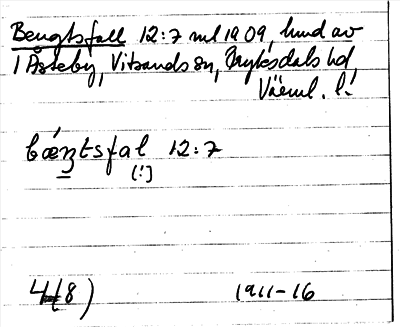 Bengtsfall 12:7 ml 1909, hmd av
1 Åsteby, Vitsands sn, Fryksdals hd,
Värml. l.
bǽŋtsfal 12:7
(!)
4(8)
1911-16